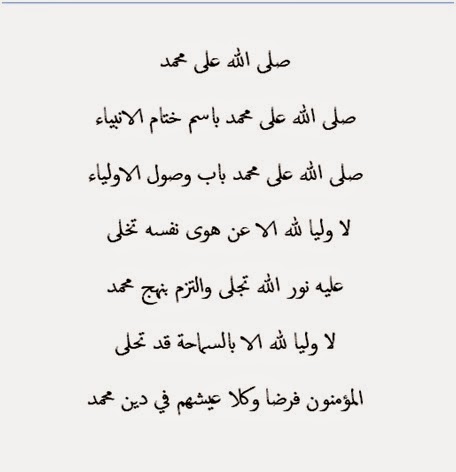 صلى الله على محمد
صلى الله على محمد باسم ختام الانبياء
صلى الله على محمد باب وصول الاولياء
لا وليا لله الا عن هوى نفسه تخلى
عليه نور الله تجلى والتزم بنهج محمد
لا وليا لله الا بالسماحة قد تحلى
المؤمنون فرضا وكلا عيشهم في دين محمد